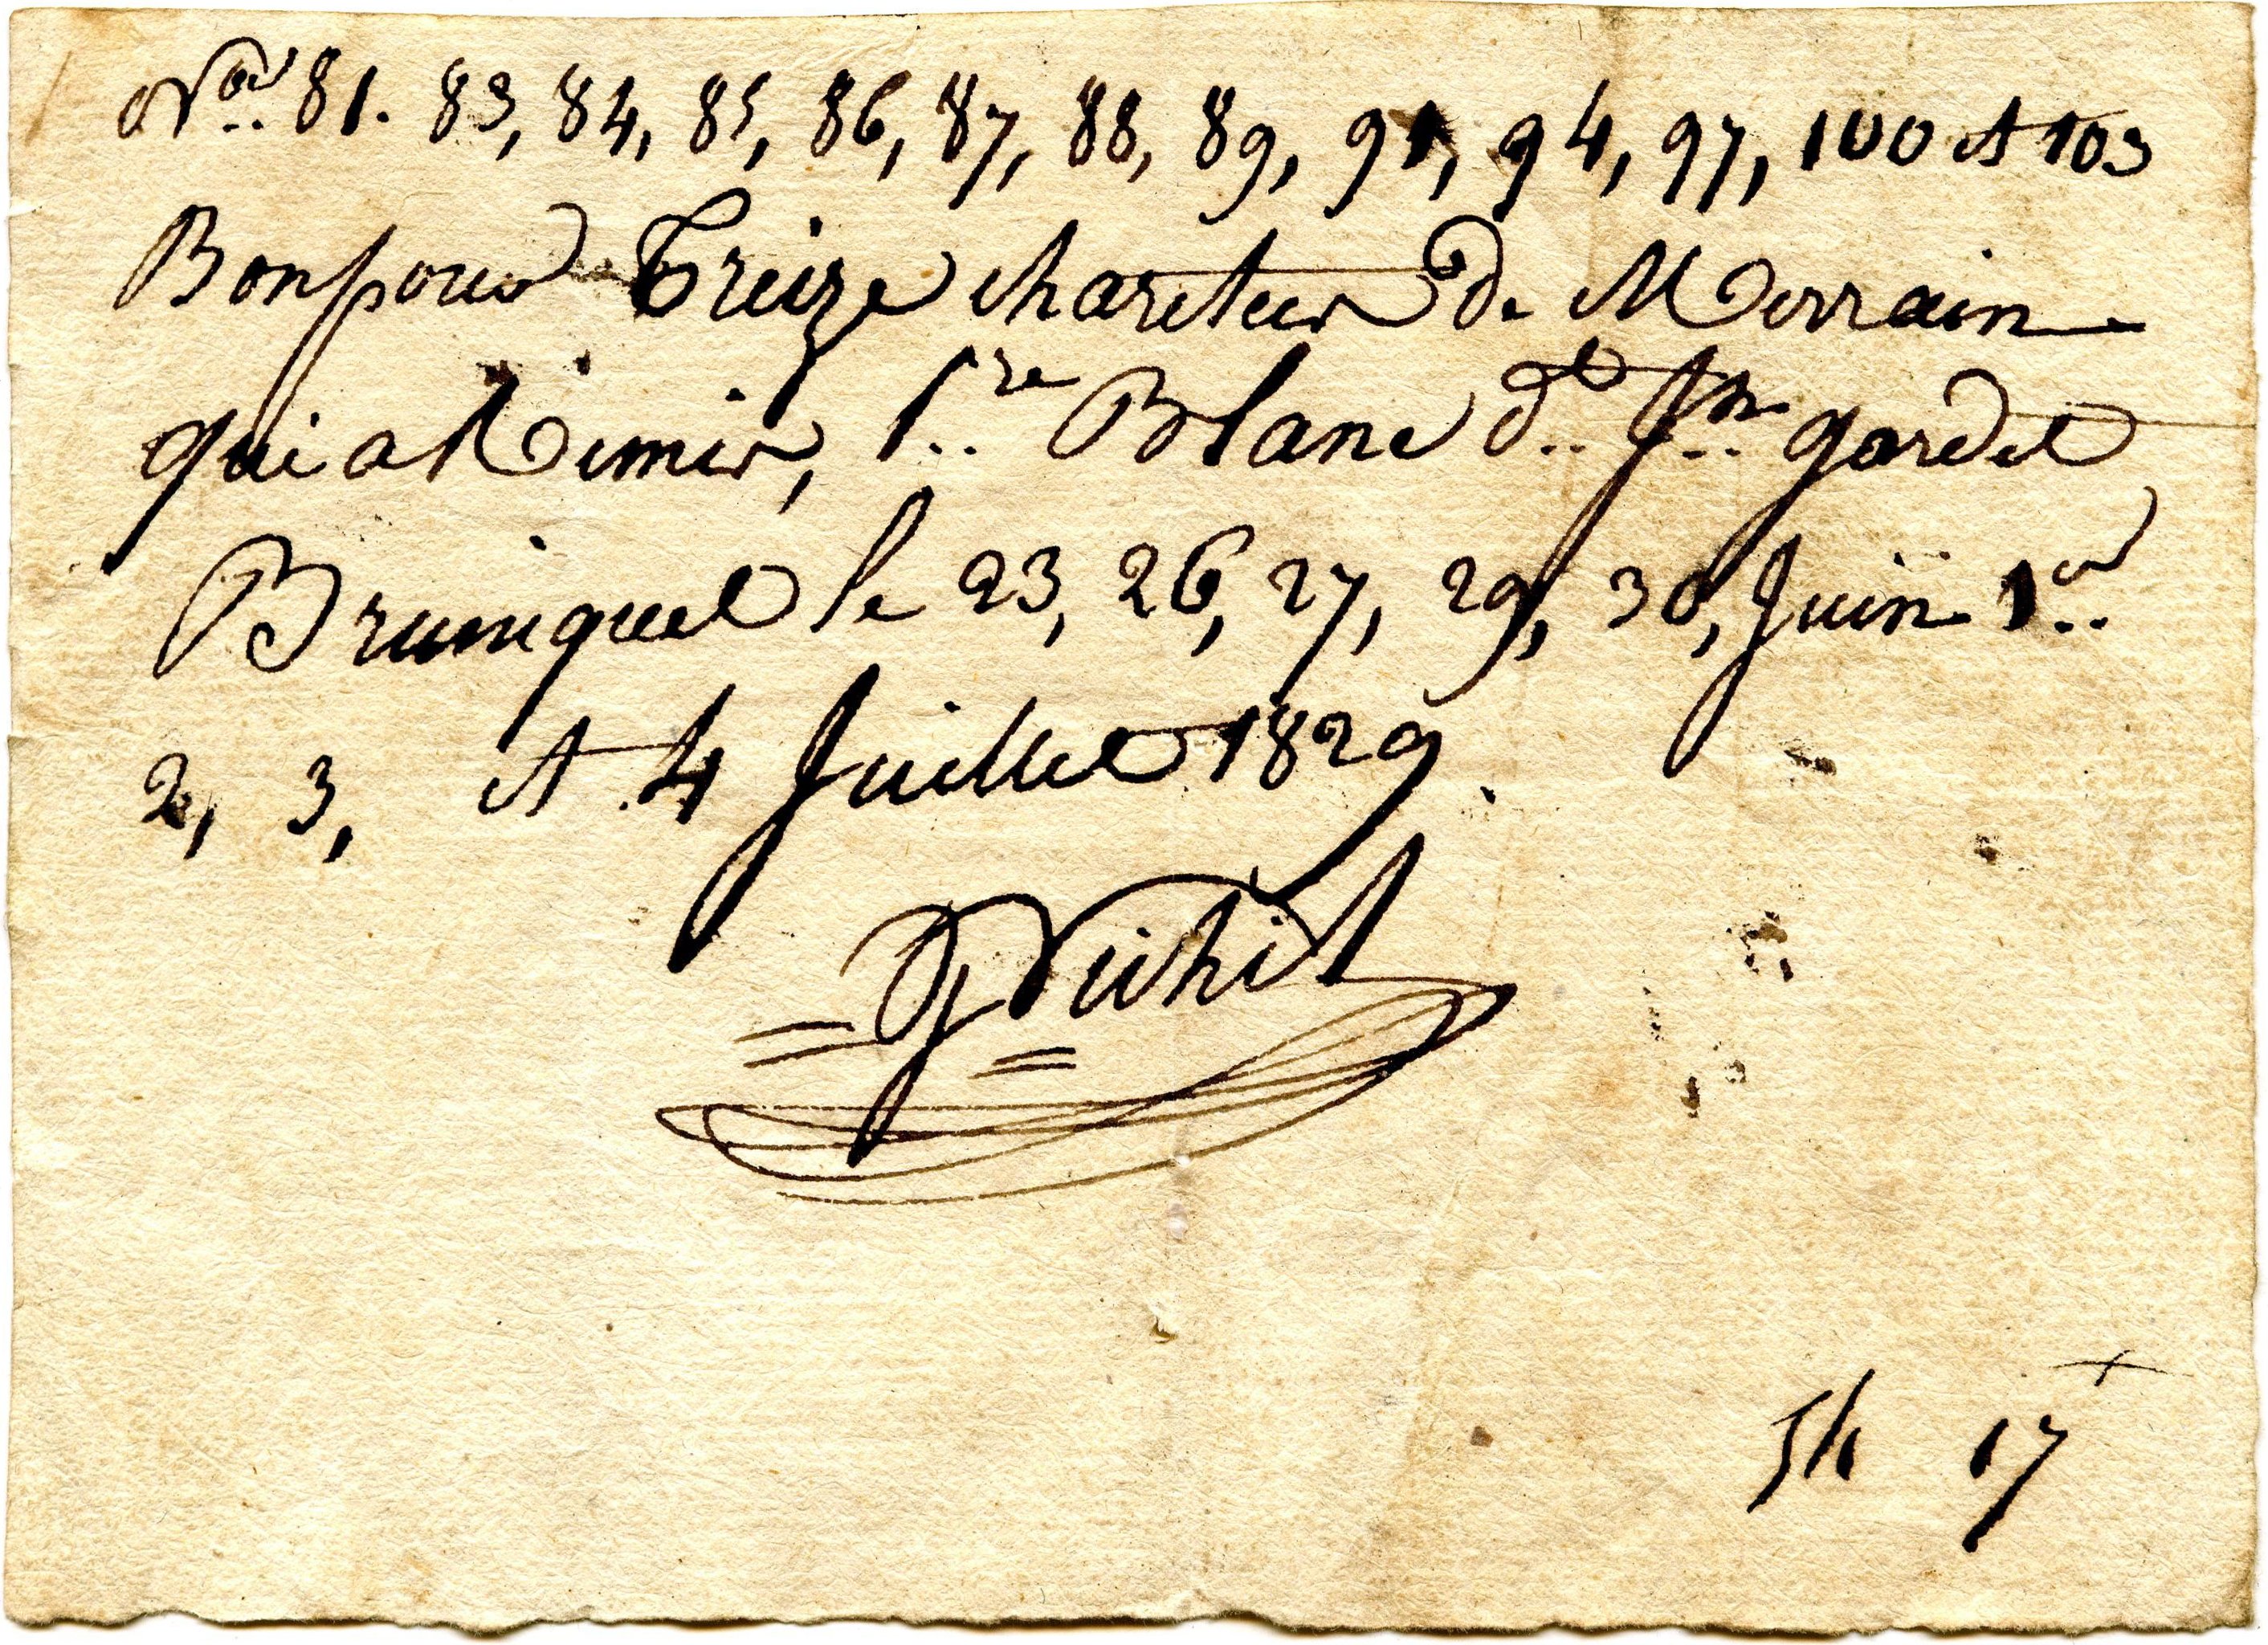 Nos 81. 83, 84, 85, 86, 87, 88, 89, 91, 94, 97, 100 et 103
Bon pour Treize charetes de Merrain
qui a Remis, Pre Blanc dt Jn gardel
Bruniquel le 23, 26, 27, 29, 30, Juin 1er
2, 3, et 4 Juillet 1829.
54 17